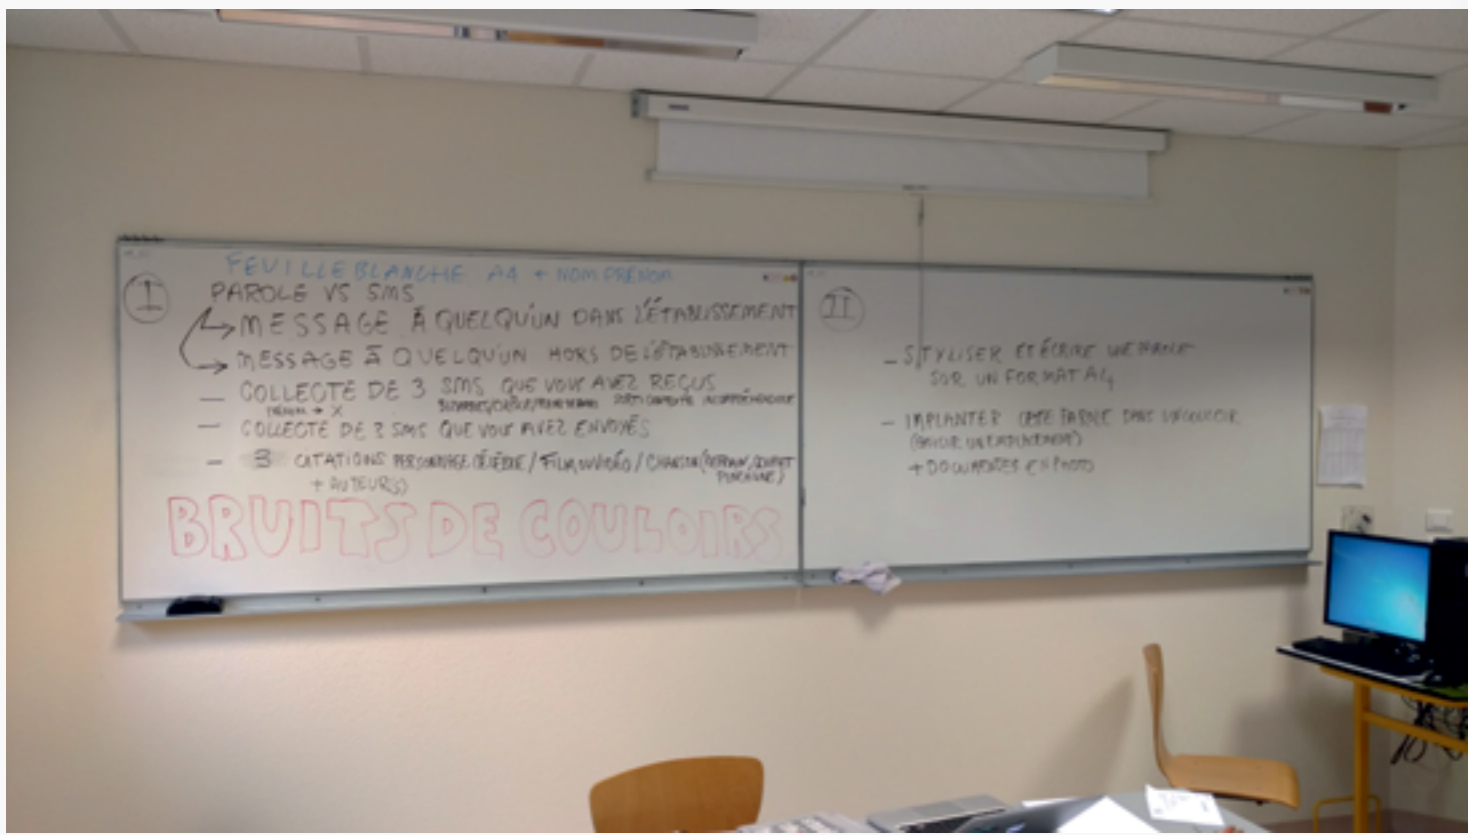 FEUILLE BLANCHE A4 + NOM PRÉNOM
I
PAROLE VS SMS
MESSAGE À QUELQU'UN DANS L'ÉTABLISSEMENT
MESSAGE À QUELQU'UN HORS DE L'ÉTABLISSEMENT
— COLLECTE DE 3 SMS QUE VOUS AVEZ REÇUS
→ X
— COLLECTE DE 3 SMS QUE VOUS AVEZ ENVOYÉS
— 3 CITATIONS PERSONNAGE CÉLÈBRE / FILM OU VIDÉO / CHANSON (REFRAIN / COUPLET
+ AUTEUR(S)
BRUITS DE COULOIRS
II
— STYLISER ET ÉCRIRE UNE PAROLE
SUR UN FORMAT A4
— IMPLANTER CETTE PAROLE DANS UN COULOIR
(CHOISIR UN EMPLACEMENT)
+ DOCUMENTER EN PHOTO